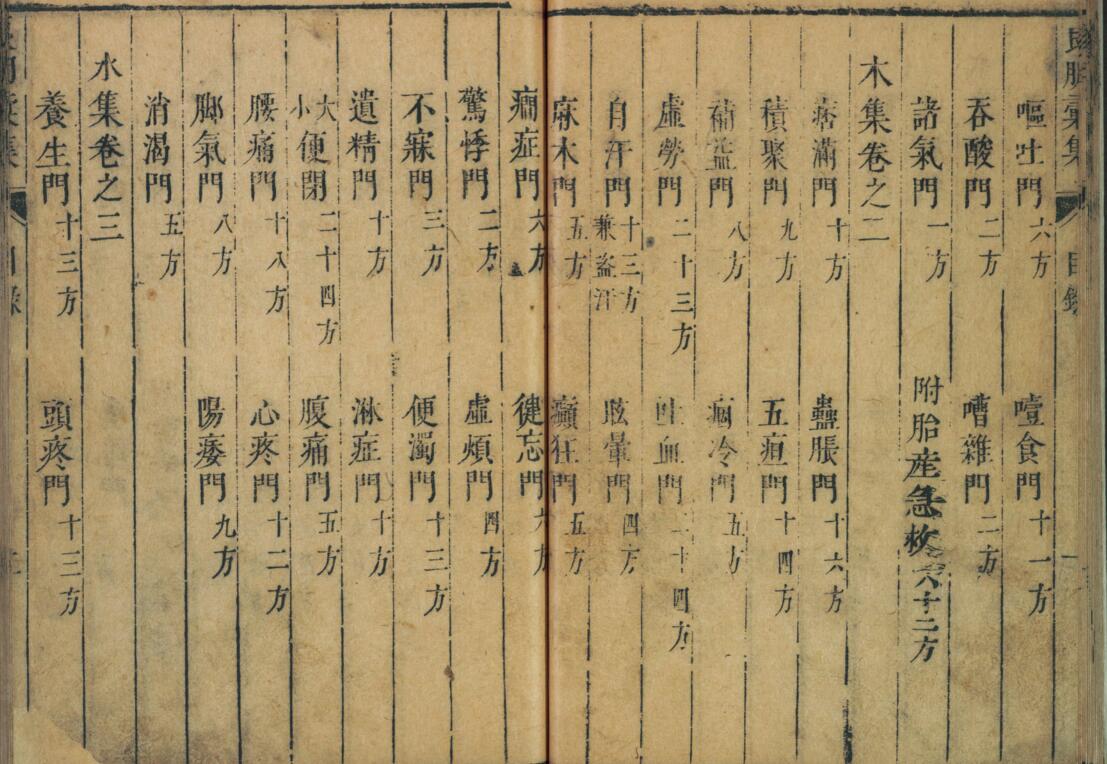 嘔吐門六方 噎食門十一方
吞酸門二方 嘈雜門二方
諸氣門一方 附胎産急救六十二方
木集卷之二
痞滿門十方 蠱脹門十六方
積聚門九方 五疸門十四方
補益門八方 痼冷門五方
虛勞門二十三方 吐血門二十四方
自汗門十三方兼盜汗 眩暈門四方
麻木門五方 癲狂門五方
癇症門六方 健忘門六方
驚悸門二方 虛煩門四方
不寐門三方 便濁門十三方
遺精門十方 淋症門十方
大小便閉二十四方 腹痛門五方
腰痛門十八方 心疼門十二方
脚氣門八方 陽痿門九方
消渴門五方
水集卷之三
養生門十三方 頭疼門十三方
目錄